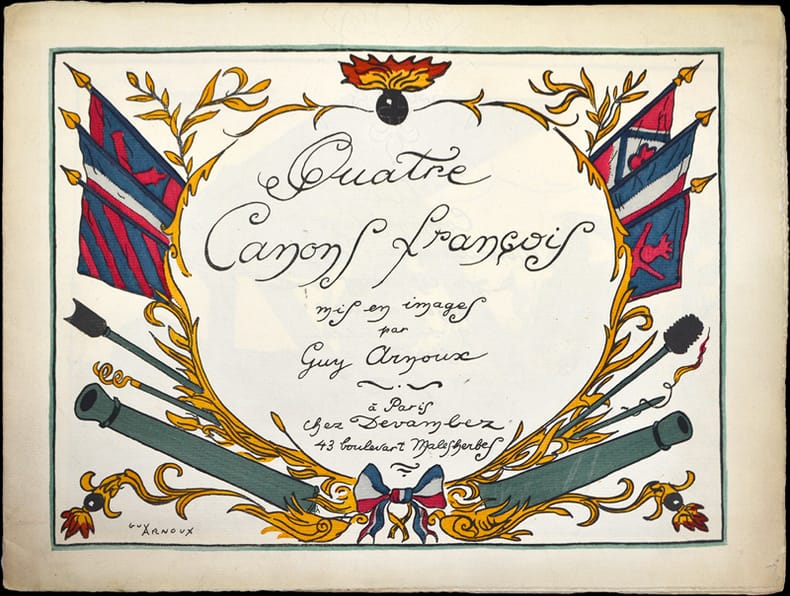 Quatre
Canons françois
mis en images
par
Guy Arnoux
à Paris
chez Devambez
43 boulevart Malesherbes
GUY
ARNOUX